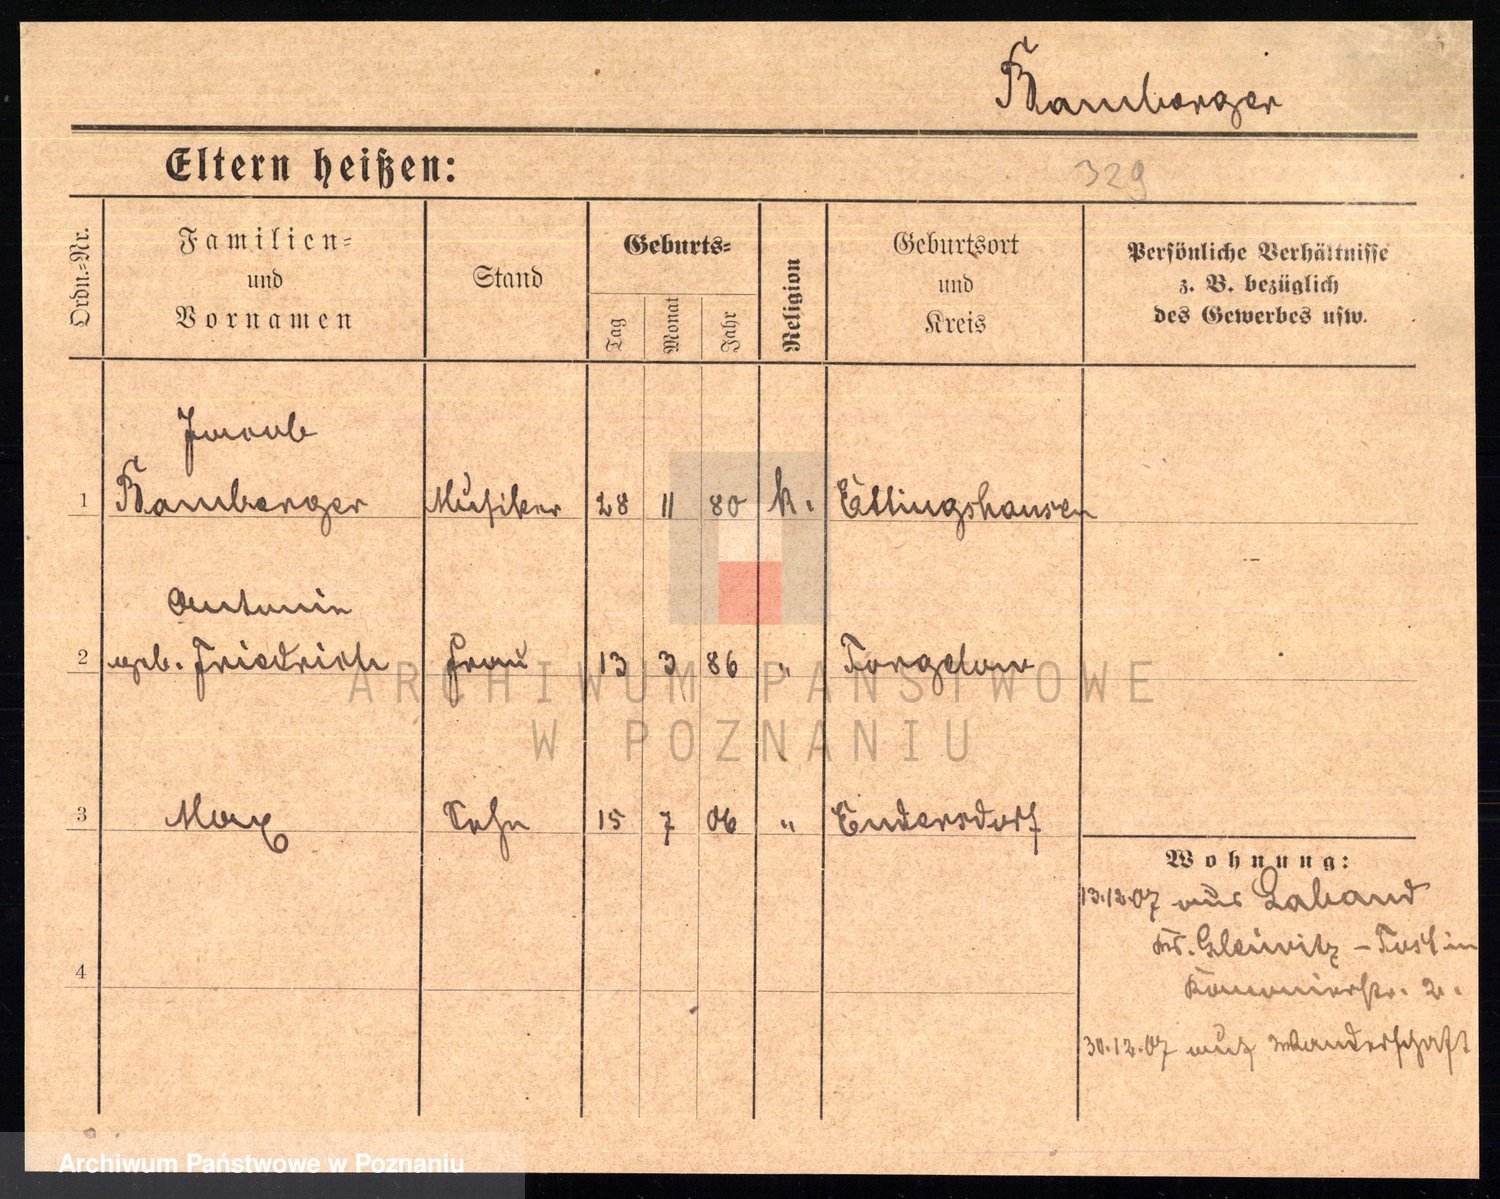 Bamberger
Eltern heißen:
329
Ordn.-Nr.
Familien-
und
Vornamen
Stand
Geburts-
Tag
Monat
Jahr
Religion
Geburtsort
und
Kreis
Persönliche Verhältnisse
z. B. bezüglich
des Gewerbes usw.
Jacob
1 Bamberger Musiker 28 11 80 k. Ettingshausen
Antonie
2 geb. Friedrich Frau 13 3 86 " Torgelow
3 Max Sohn 15 7 06 " Endersdorf
4
Wohnung:
13.12.07 aus Laband
Kr. Gleiwitz - Tost in
Kanonierstr. 2.
30.12.07 auf Wanderschaft
ARCHIWUM PAŃSTWOWE
W POZNANIU
Archiwum Państwowe w Poznaniu